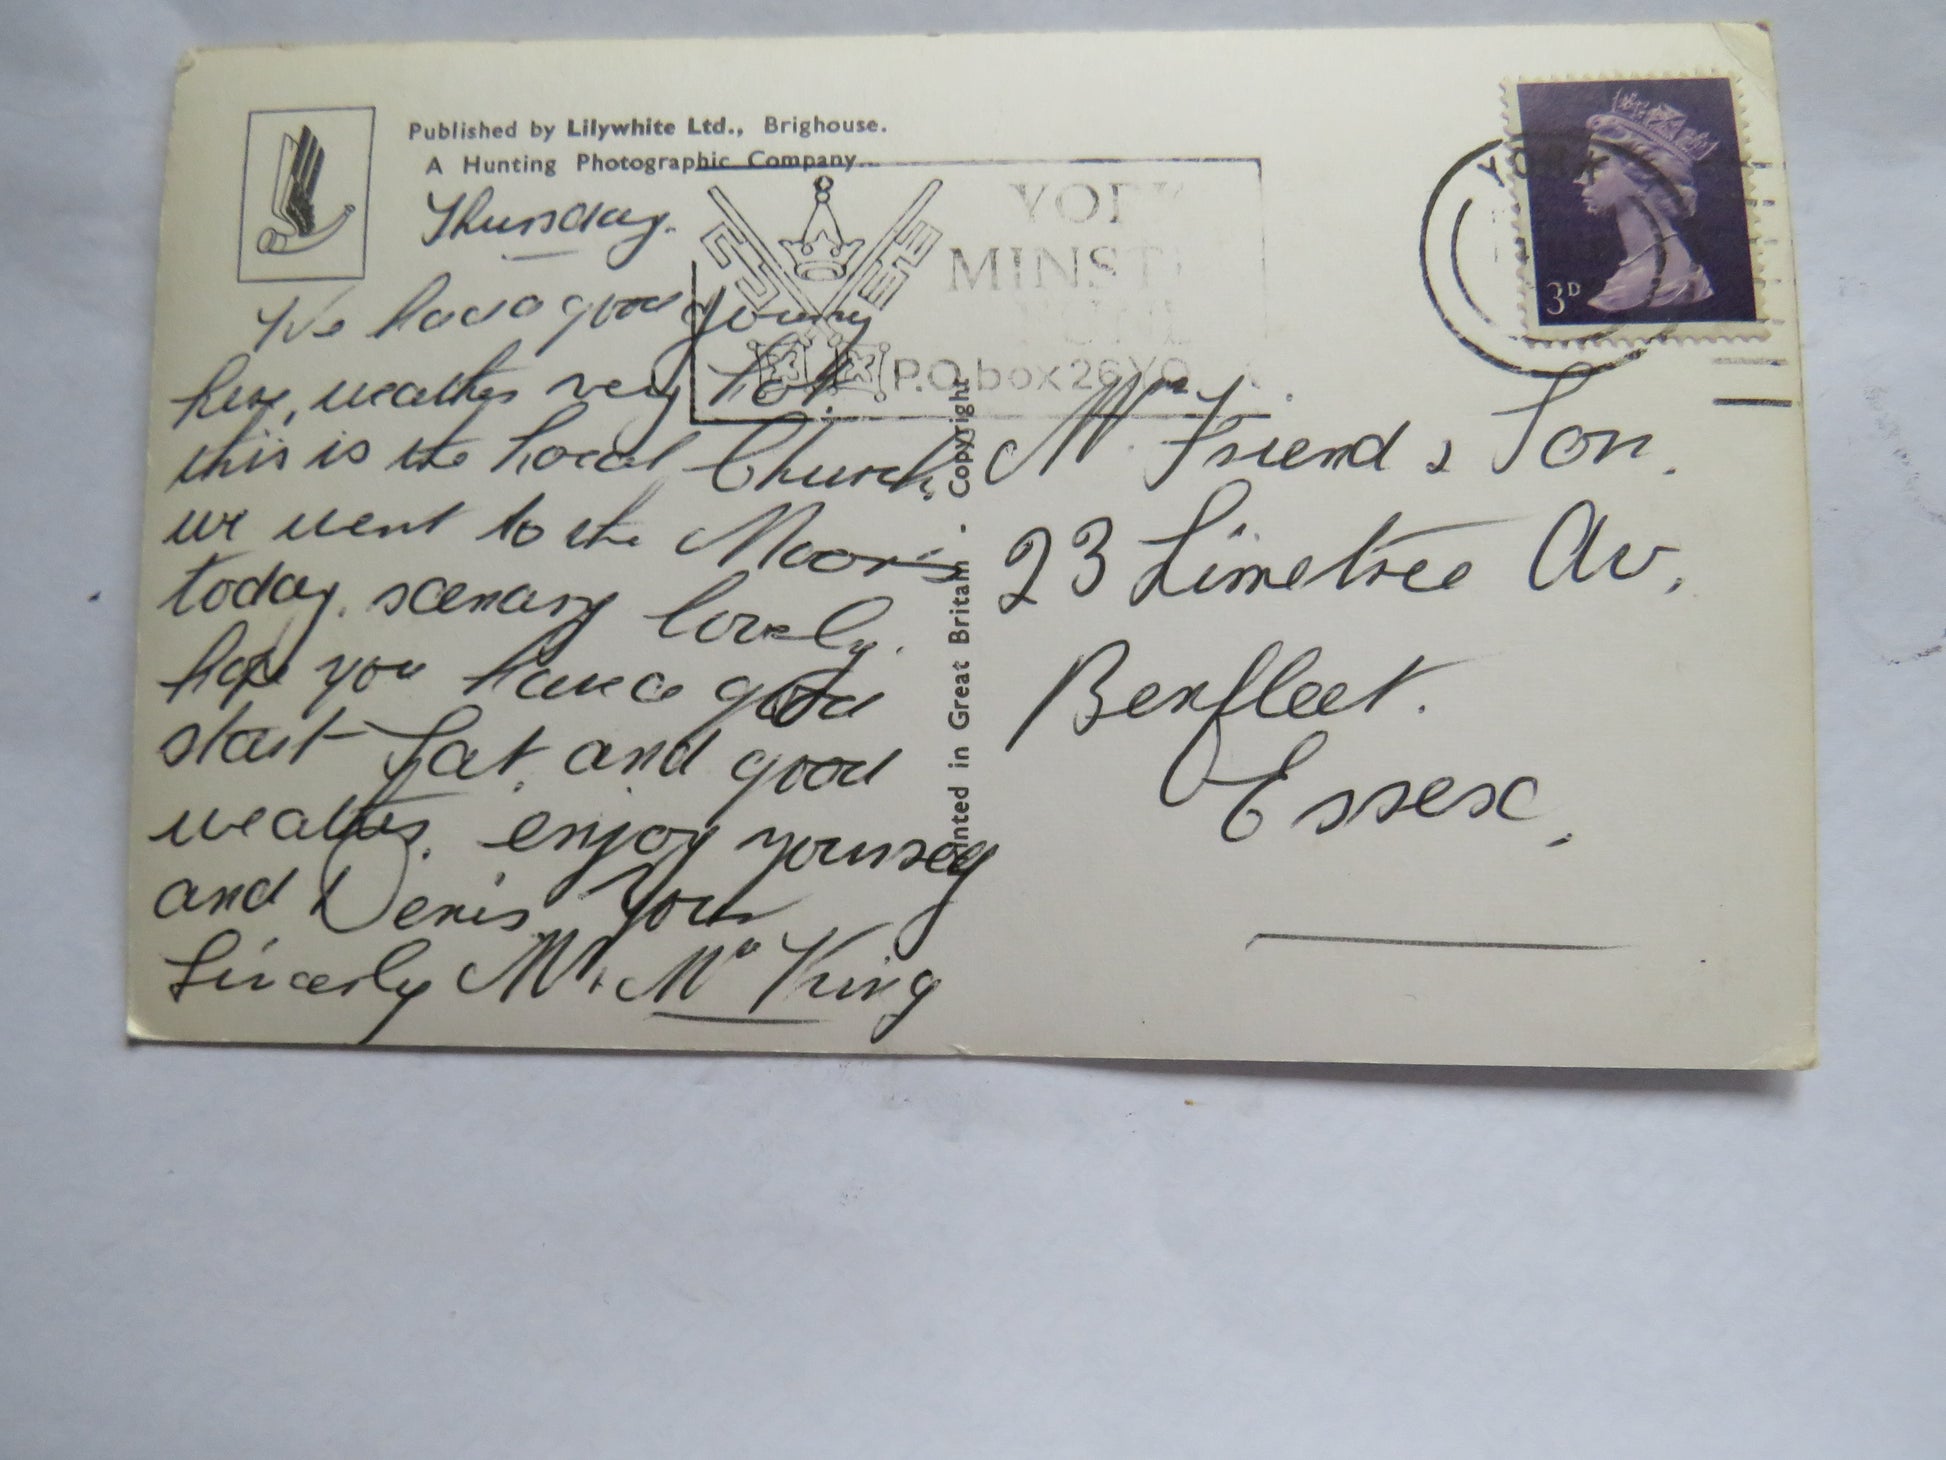 Published by Lilywhite Ltd., Brighouse.
A Hunting Photographic Company
Thursday.
We had a good journey
here, weather very hot.
this is the local Church.
we went to the Moors
today. scenary lovely.
hope you have a good
start Sat. and good
weather. enjoy yourself
and Denis. Yours
Sincerly Mr. Mrs King
Printed in Great Britain . Copyright
YORK
MINST
P.O. box 26 YO K
YORK
3D
Mrs Friend & Son.
23 Limetree Av,
Benfleet.
Essex,